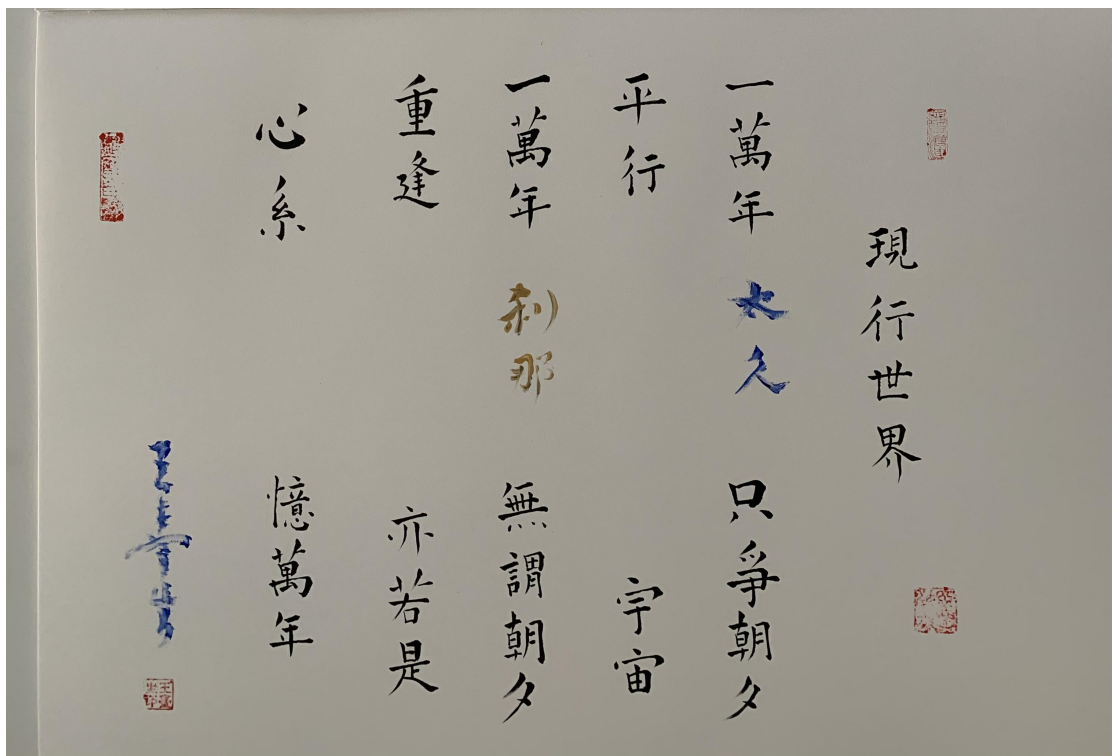 現行世界
一萬年 太久 只爭朝夕
平行 宇宙
一萬年 剎那 無謂朝夕
重逢 亦若是
心系 憶萬年